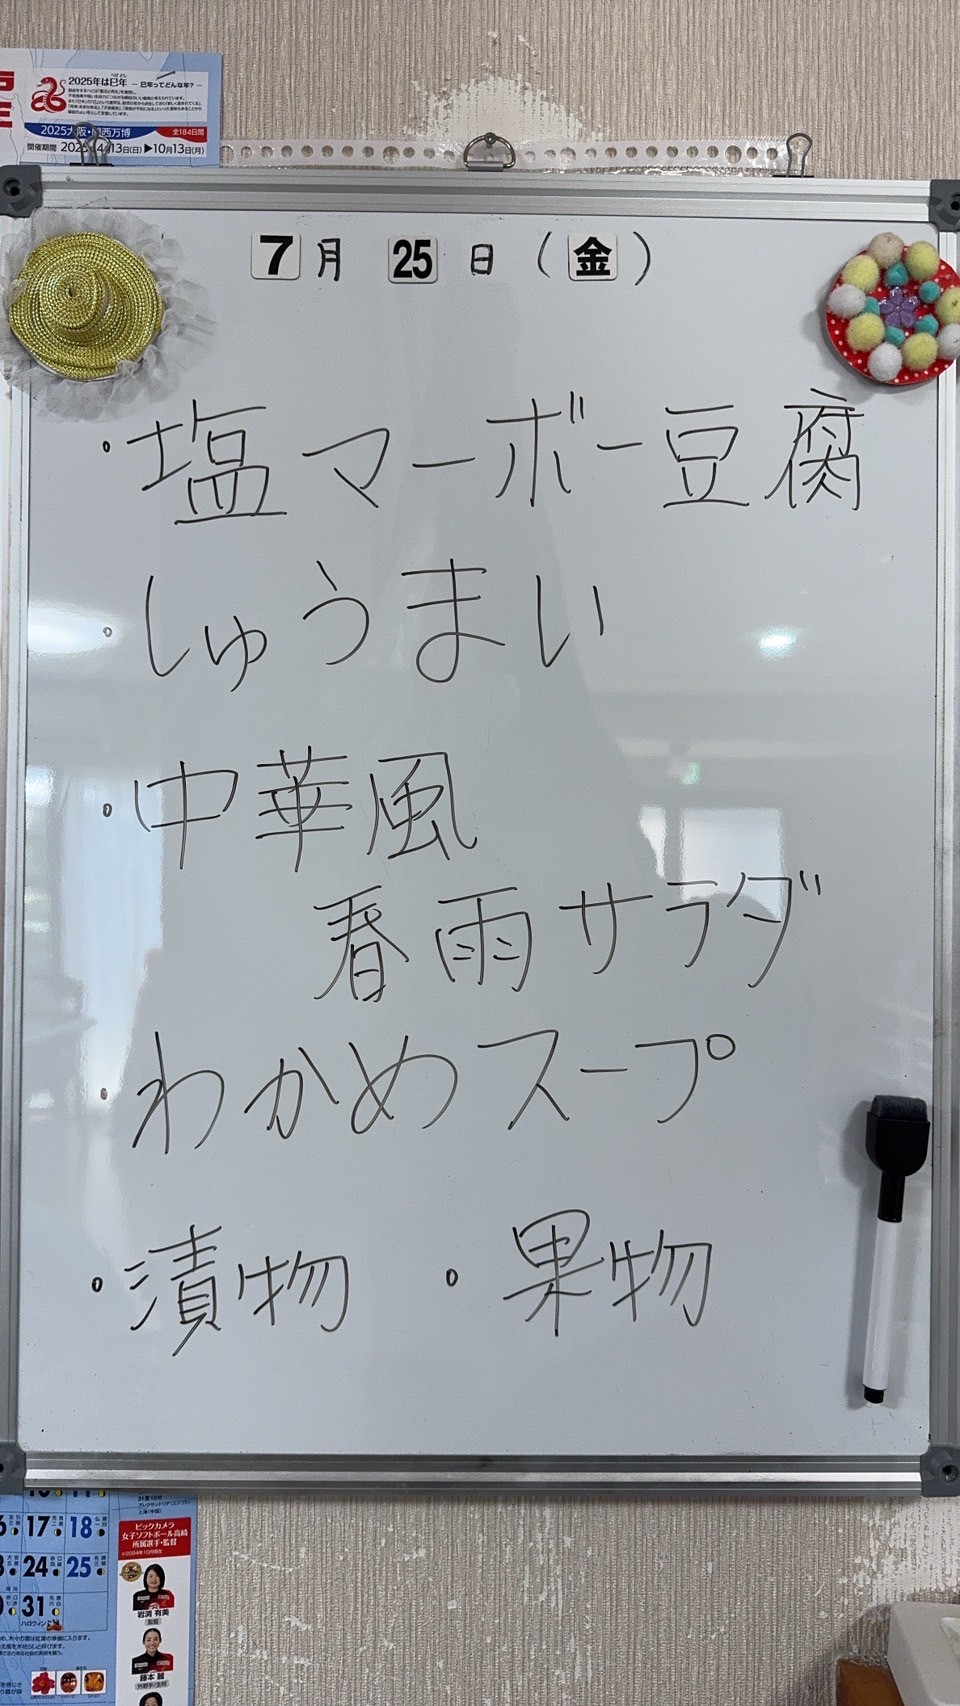 2025年は巳年 ― 巳年ってどんな年? ―
2025大阪・関西万博 全184日間
開催期間 2025年4月13日(日)▶10月13日(月)
7月 25日(金)
・塩マーボー豆腐
・しゅうまい
・中華風
春雨サラダ
・わかめスープ
・漬物 ・果物
17 18
24 25
31
ハロウィン
ビックカメラ
女子ソフトボール高崎
所属選手・監督
岩渕 有美
監督
藤本 麗